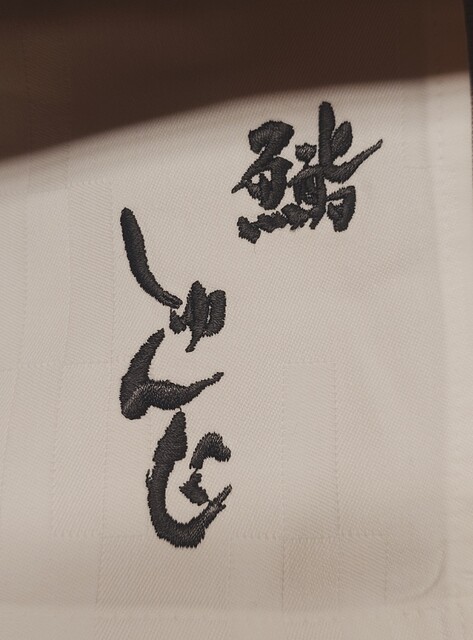 鮨
しゅんじ